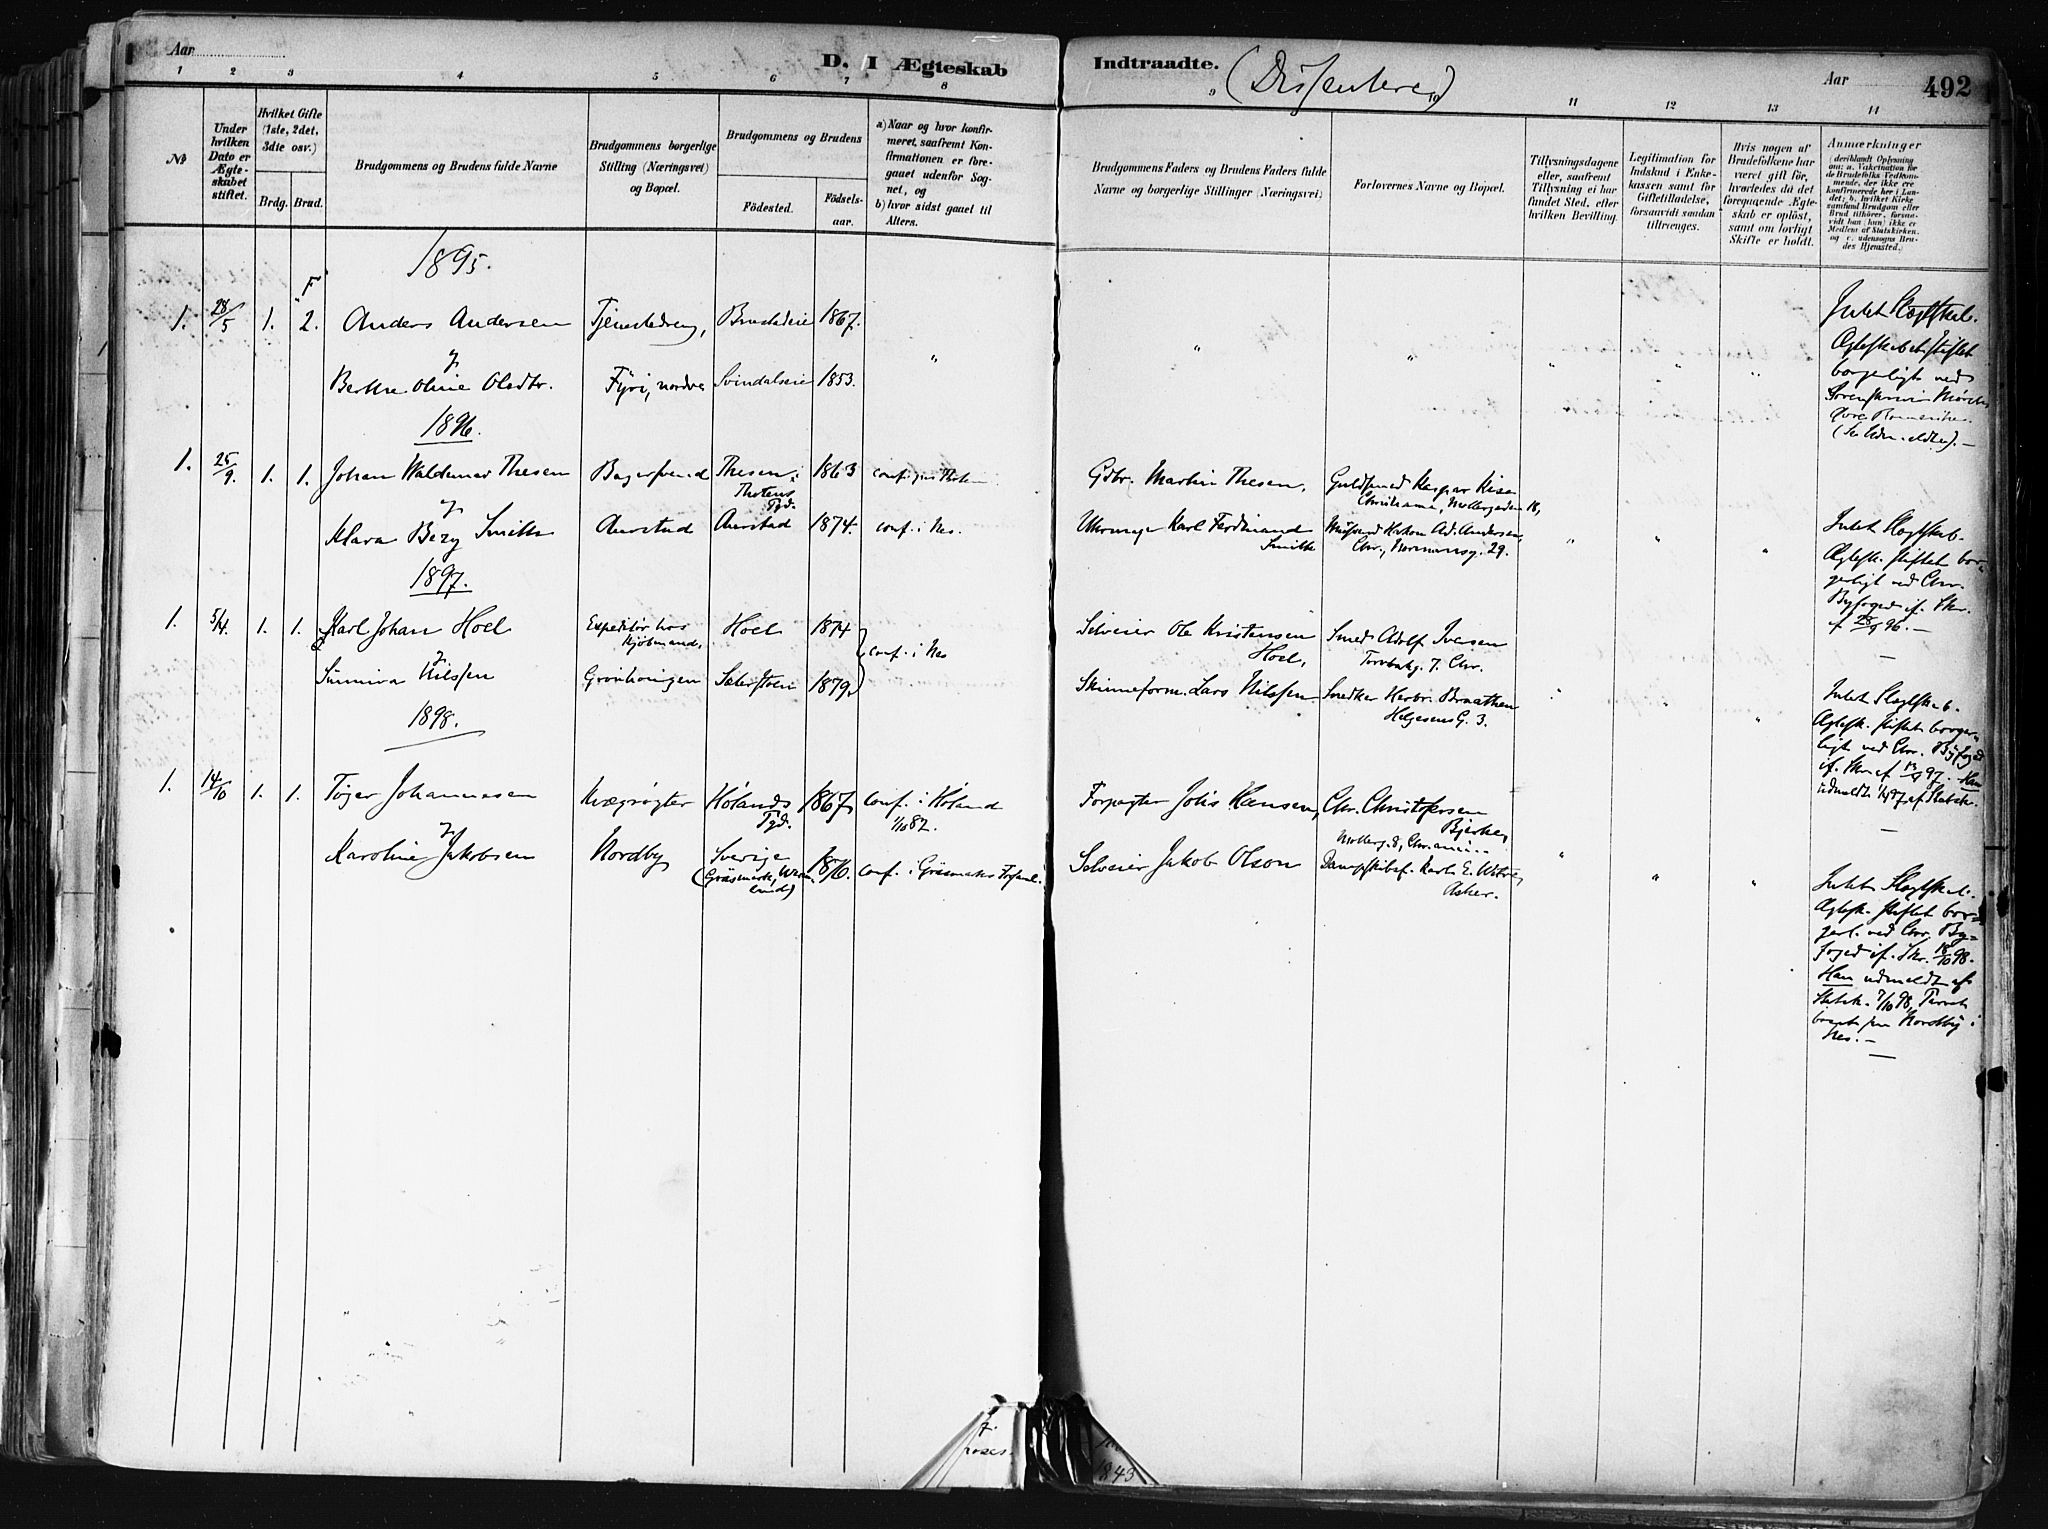 Aar
D. I Ægteskab
Indtraadte.
(Dissentere)
Aar
492
1 2 3 4 5 6 7 8 9 10 11 12 13 14
No
Under hvilken Dato er Ægteskabet stiftet.
Hvilket Gifte (1ste, 2det, 3die osv.)
Brdg. Brud.
Brudgommens og Brudens fulde Navne
Brudgommens borgerlige Stilling (Næringsvei) og Bopæl.
Brudgommens og Brudens
Fødested.
Fødselsaar.
a) Naar og hvor konfirmeret, saafremt Konfirmationen er foregaaet udenfor Sognet, og
b) hvor sidst gaaet til Alters.
Brudgommens Faders og Brudens Faders fulde Navne og borgerlige Stillinger (Næringsvei)
Forlovernes Navne og Bopæl.
Tillysningsdagene eller, saafremt Tillysning ei har fundet Sted, efter hvilken Bevilling.
Legitimation for Indskud i Enkekassen samt for Giftetilladelse, forsaavidt saadan tiltrænges.
Hvis nogen af Brudefolkene har været gift før, hvorledes da det foregaaende Ægteskab er opløst, samt om lovligt Skifte er holdt.
Anmærkninger
(deriblandt Oplysning om: a. Vaccination for de Brudefolks Vedkommende, der ikke ere konfirmerede her i Landet; b. hvilket Kirkesamfund Brudgom eller Brud tilhører, forsaavidt han (hun) ikke er Medlem af Statskirken, og c. udensogns Brudes Hjemsted.)
1895.
F
1. 28/5 1. 2. Anders Andersen Tjenestedreng, 1867.
Intet Slægtskab.
Ægteskabet stiftet
borgerligt ved
Berthe Oline Olsdtr. Fyri, nordre Svindalseie 1853.
1896.
1. 25/9. 1. 1. Johan Waldemar Thesen Bagersvend Thesen i Thotens Pgd. 1863
Gdbr. Martin Thesen,
Guldsmed Kaspar
Christiania, Møllergaden 18,
Klara Smith Aurstad Aurstad 1874. conf. i Nes.
Karl Ferdinand Smith
Ad. Andersen,
Chr., Normannsg. 29.
Intet Slægtskab.
Ægtesk. stiftet borgerligt ved Chr.
Byfoged if. Skr.
af 28/9 96.—
1897.
1. 5/4. 1. 1. Karl Johan Hoel Expeditør hos Kjøbmand, Hoel 1874
conf. i Nes
Selveier Ole Kristensen Hoel,
Smed Adolf Iversen
7. Chr.
Sunniva Nilssen Grønhaugen Sæterstøen 1879,
Skinneform. Lars Nilssen.
Snedker Herbr. Braathen
Helgesens G. 3.
Intet Slægtskab.
Ægtesk. stiftet borgerligt ved Chr. Byfoged
if. Skr. af 13/4 97. Han
udmeldt 1/4 97 af Statsk.
1898.
1. 14/10 1. 1. Tøger Johannesen Kvægrøgter Hølands Pgd. 1867, conf. i Høland 1/10 82.
Forpagter Johs Hansen,
Chr. Christofersen
Bjerke,
Møllerg. 8, Chr.ania.
Karoline Jakobsen Nordby Sverige (Gräsmark, Wermland) 1876. conf. i Gräsmarks
Selveier Jakob Olson
Dampskibsf. Karl E.
Asker.
Intet Slægtskab.
Ægtesk. stiftet borgerl. ved Chr. Byfoged if. Skr. 18/10 98.
Han udmeldt af
Statsk. 7/10 98,
Nordby i
Nes.—
1843